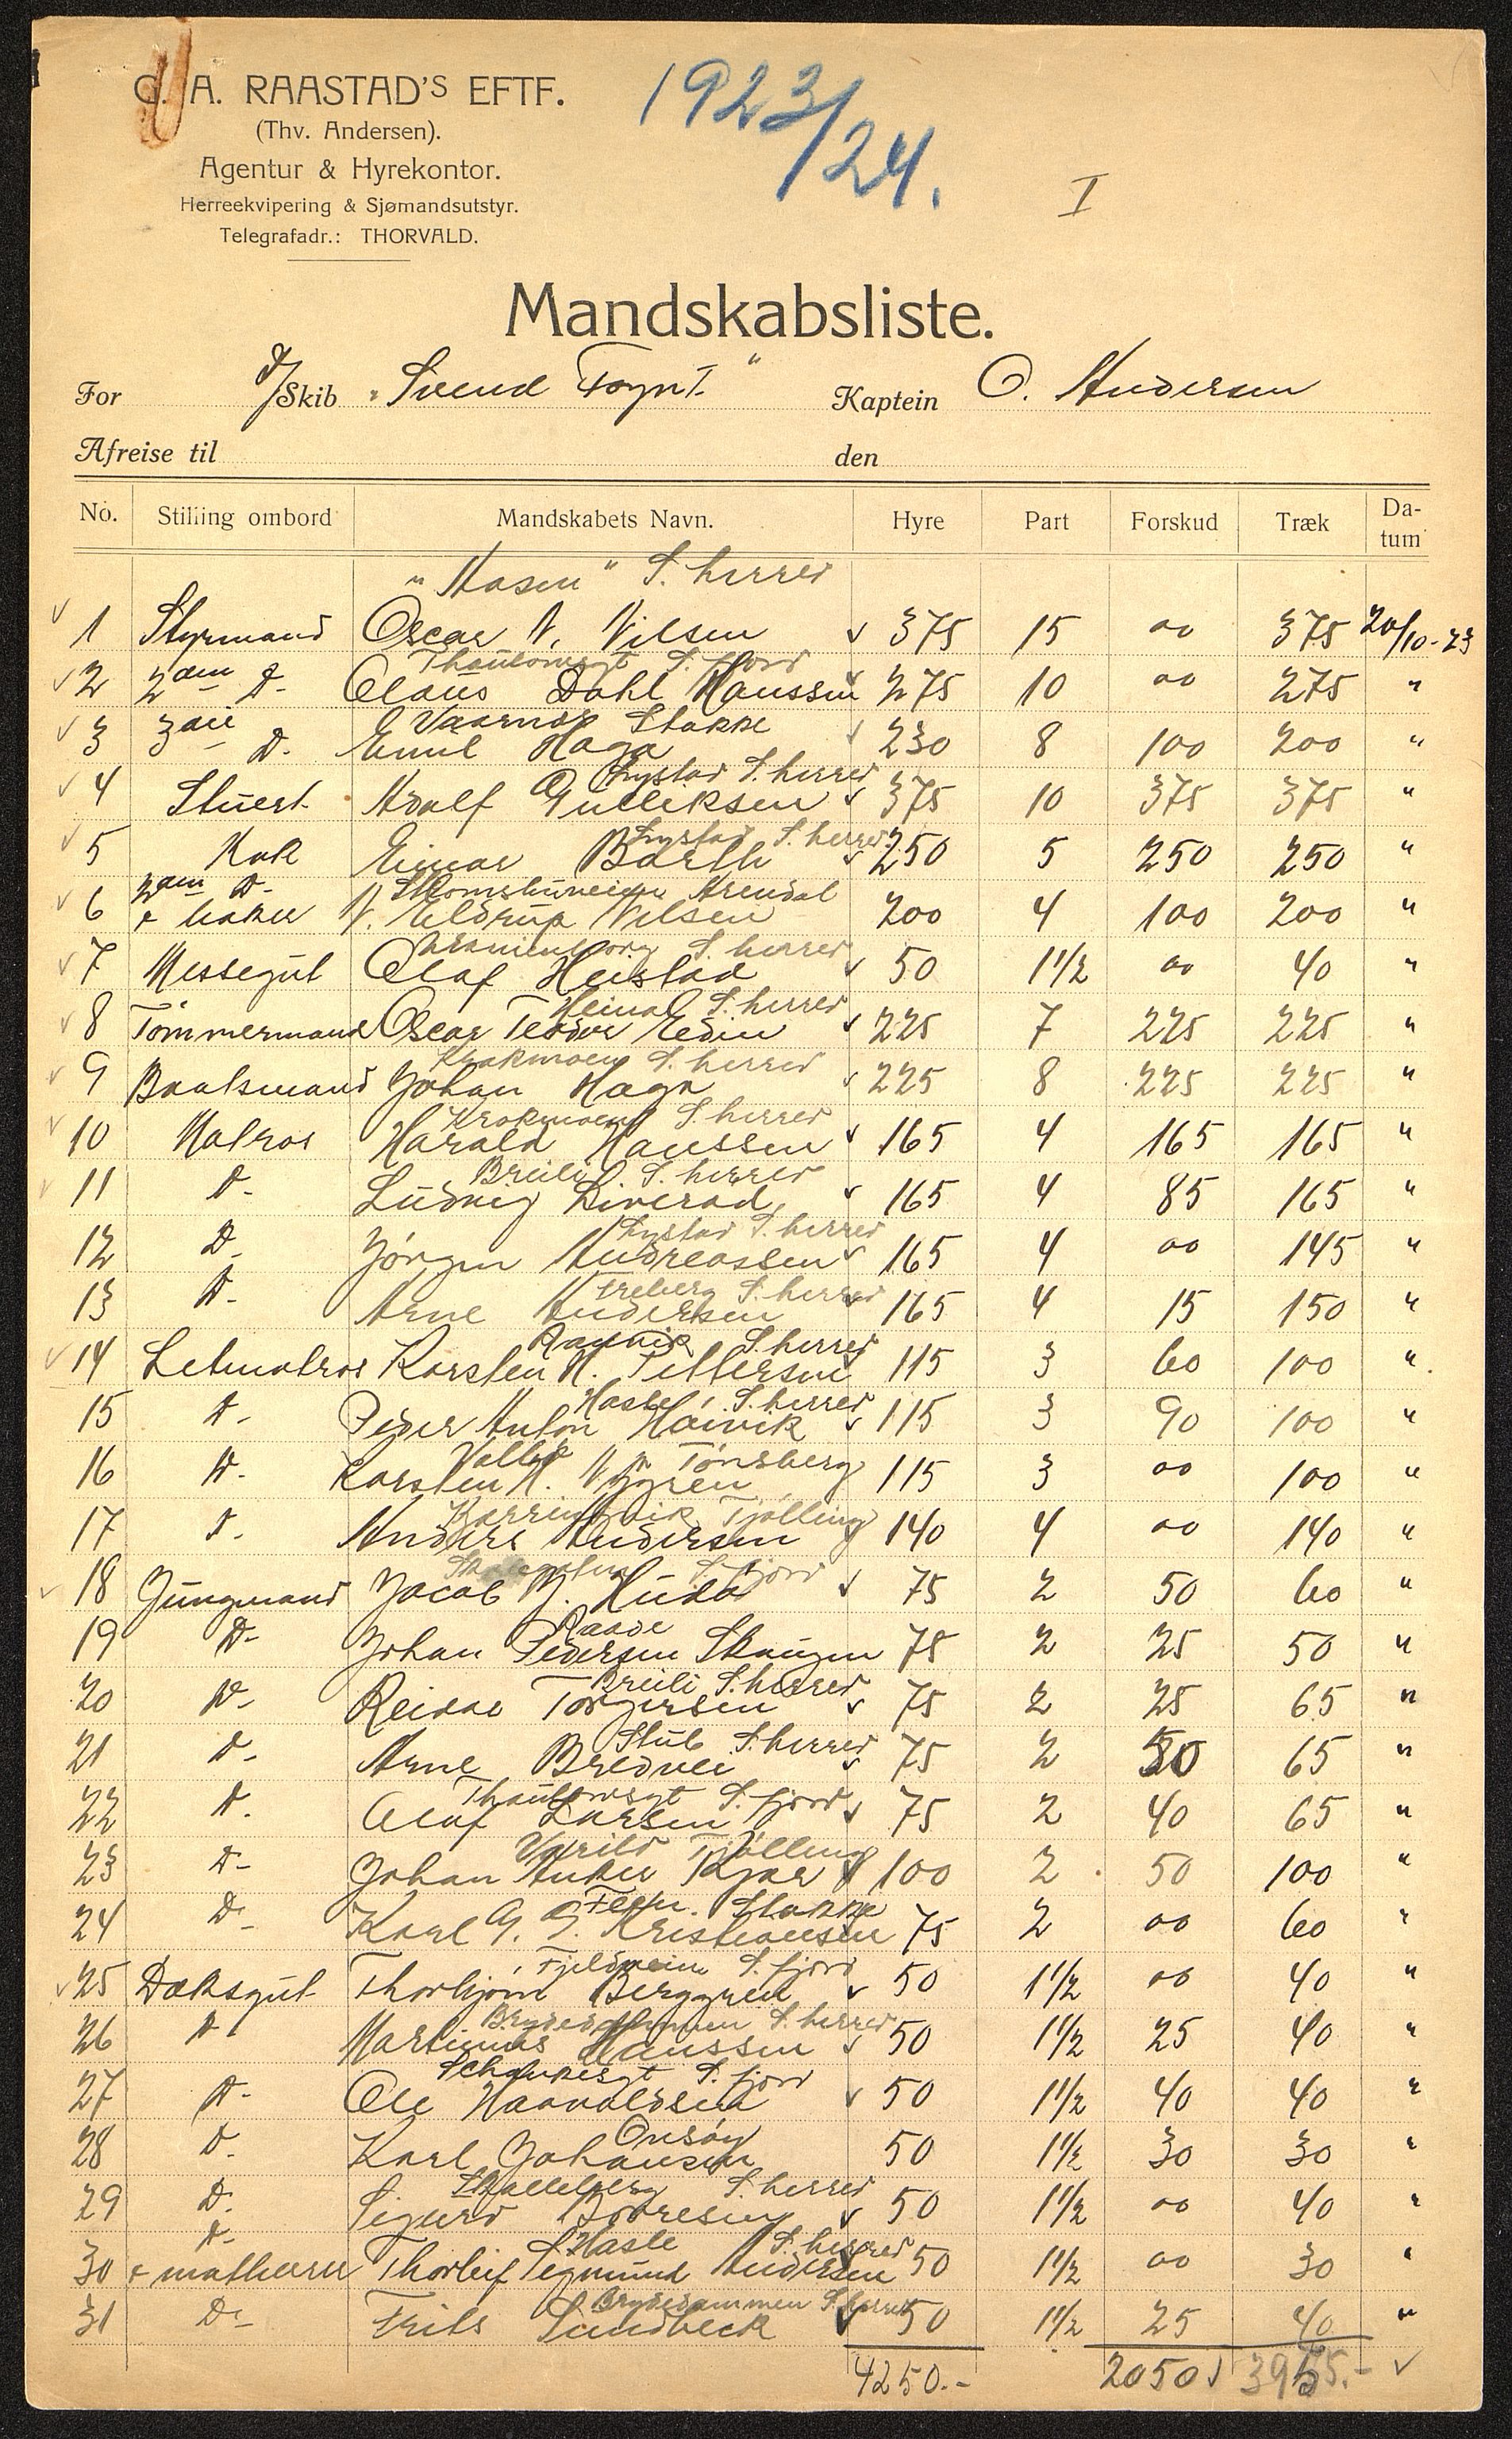 C. A. RAASTAD'S EFTF.
(Thv. Andersen).
Agentur & Hyrekontor.
Herreekvipering & Sjømandsutstyr.
Telegrafadr.: THORVALD.
1923/24.
I
Mandskabsliste.
For Skib "Svend Foyn I." Kaptein O. Andersen
Afreise til den
No. Stilling ombord Mandskabets Navn. Hyre Part Forskud Træk Datum
"Aasen" S. herred
1 Styrmand Oscar N. Nilsen 375 15 oo 375 20/10-23
Thaulowsgt S. fjord
2 2den D- Claus Dahl Hanssen 275 10 oo 275 "
Vaarnes Stokke
3 3die D. Emil Haga 230 8 100 200 "
Lystad S. herred
4 Stuert Adolf Gulliksen 375 10 375 375 "
Lystad S. herred
5 Kok Einar Barth 250 5 250 250 "
Arendal
6 2den D- & baker N. Eldrup Nilsen 200 4 100 200 "
S. herred
7 Messegut Olaf Heistad 50 1 1/2 oo 40 "
S. herred
8 Tömmermand Oscar Teodor Edin 225 7 225 225 "
Krokmoen S. herred
9 Baatsmand Johan Haga 225 8 225 225 "
Krokmoen S. herred
10 Matros Harald Hanssen 165 4 165 165 "
Breili S. herred
11 D- Ludvig Liverød 165 4 85 165 "
Lystad S. herred
12 D- Jörgen Andreassen 165 4 oo 145 "
S. herred
13 D- Arne Andersen 165 4 15 150 "
Ranvik S. herred
14 Letmatros Karsten A. Pettersen 115 3 60 100 "
Hasle S. herred
15 D- Peder Anton Haivik 115 3 90 100 "
Tönsberg
16 D- Karsten H. Nygren 115 3 oo 100 "
Tjölling
17 D. Anders Andersen 140 4 oo 140 "
S. fjord
18 Jungmand Jacob M. 75 2 50 60 "
Raade
19 D- Johan Pedersen Skaugen 75 2 25 50 "
Breili S. herred
20 D- Reidar Torgersen 75 2 25 65 "
Stub S. herred
21 D- Arne Bredvei 75 2 50 65 "
Thaulowsgt S. fjord
22 D. Olaf Larsen 75 2 40 65 "
Varild Tjölling
23 D- Johan Anker Kjær 100 2 50 100 "
Stokke
24 D- Karl G. Kristiansen 75 2 oo 60 "
Fjeldvein S. fjord
25 Dæksgut Thorbjörn Berggren 50 1 1/2 oo 40 "
Brydedammen S. herred
26 D- Martinius Hanssen 50 1 1/2 25 40 "
S. fjord
27 D- Ole Haavaldsen 50 1 1/2 40 40 "
Onsöy
28 D. Karl Johansen 50 1 1/2 30 30 "
S. herred
29 D. Sigurd Borresen 50 1 1/2 oo 40 "
Hasle S. herred
30 D- & Thorleif Sigmund Andersen 50 1 1/2 oo 30 "
Brydedammen S. herred
31 D- Frits Sundbeck 50 1 1/2 25 40 "
4250.- 2050 3955.-